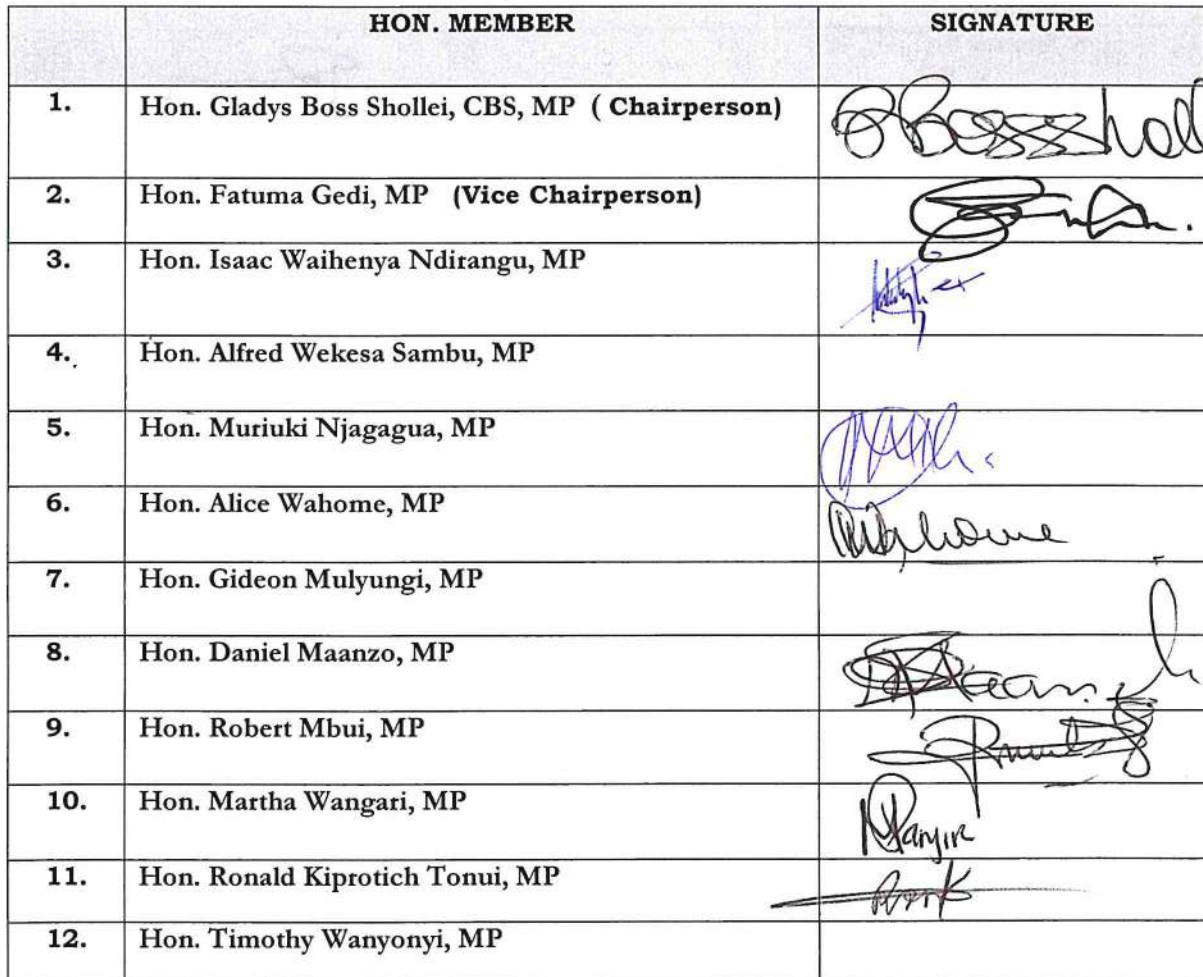 HON. MEMBER SIGNATURE
1. Hon. Gladys Boss Shollei, CBS, MP ( Chairperson)
2. Hon. Fatuma Gedi, MP (Vice Chairperson)
3. Hon. Isaac Waihenya Ndirangu, MP
4. Hon. Alfred Wekesa Sambu, MP
5. Hon. Muriuki Njagagua, MP
6. Hon. Alice Wahome, MP
7. Hon. Gideon Mulyungi, MP
8. Hon. Daniel Maanzo, MP
9. Hon. Robert Mbui, MP
10. Hon. Martha Wangari, MP
11. Hon. Ronald Kiprotich Tonui, MP
12. Hon. Timothy Wanyonyi, MP